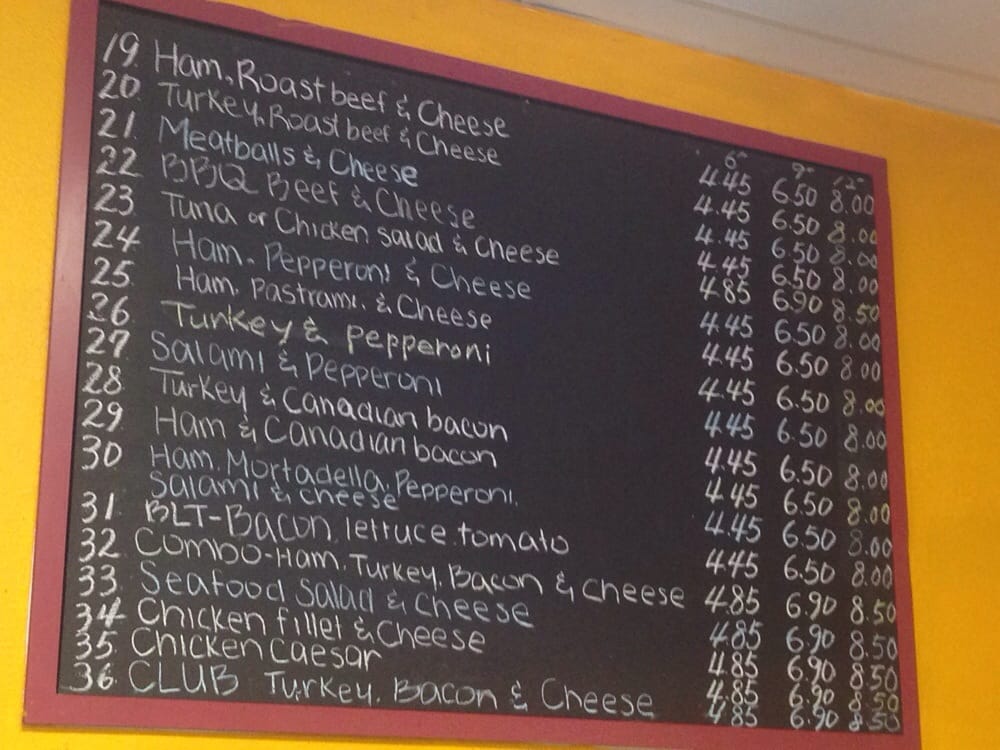 6" 9" 12"
19. Ham, Roast beef & Cheese 4.45 6.50 8.00
20 Turkey, Roast beef & Cheese 4.45 6.50 8.00
21 Meatballs & Cheese 4.45 6.50 8.00
22 BBQ Beef & Cheese 4.45 6.50 8.00
23 Tuna or Chicken salad & Cheese 4.85 6.90 8.50
24 Ham, Pepperoni & Cheese 4.45 6.50 8.00
25 Ham, Pastrami, & Cheese 4.45 6.50 8.00
26 Turkey & pepperoni 4.45 6.50 8.00
27 Salami & Pepperoni 4.45 6.50 8.00
28 Turkey & Canadian bacon 4.45 6.50 8.00
29 Ham & Canadian bacon 4.45 6.50 8.00
30 Ham, Mortadella, Pepperoni, 4.45 6.50 8.00
Salami & cheese
31. BLT-Bacon, lettuce, tomato 4.45 6.50 8.00
32. Combo-Ham, Turkey, Bacon & Cheese 4.85 6.90 8.50
33. Seafood Salad & Cheese 4.85 6.90 8.50
34 Chicken fillet & Cheese 4.85 6.90 8.50
35. Chicken Caesar 4.85 6.90 8.50
36. CLUB Turkey, Bacon & Cheese 4.85 6.90 8.50